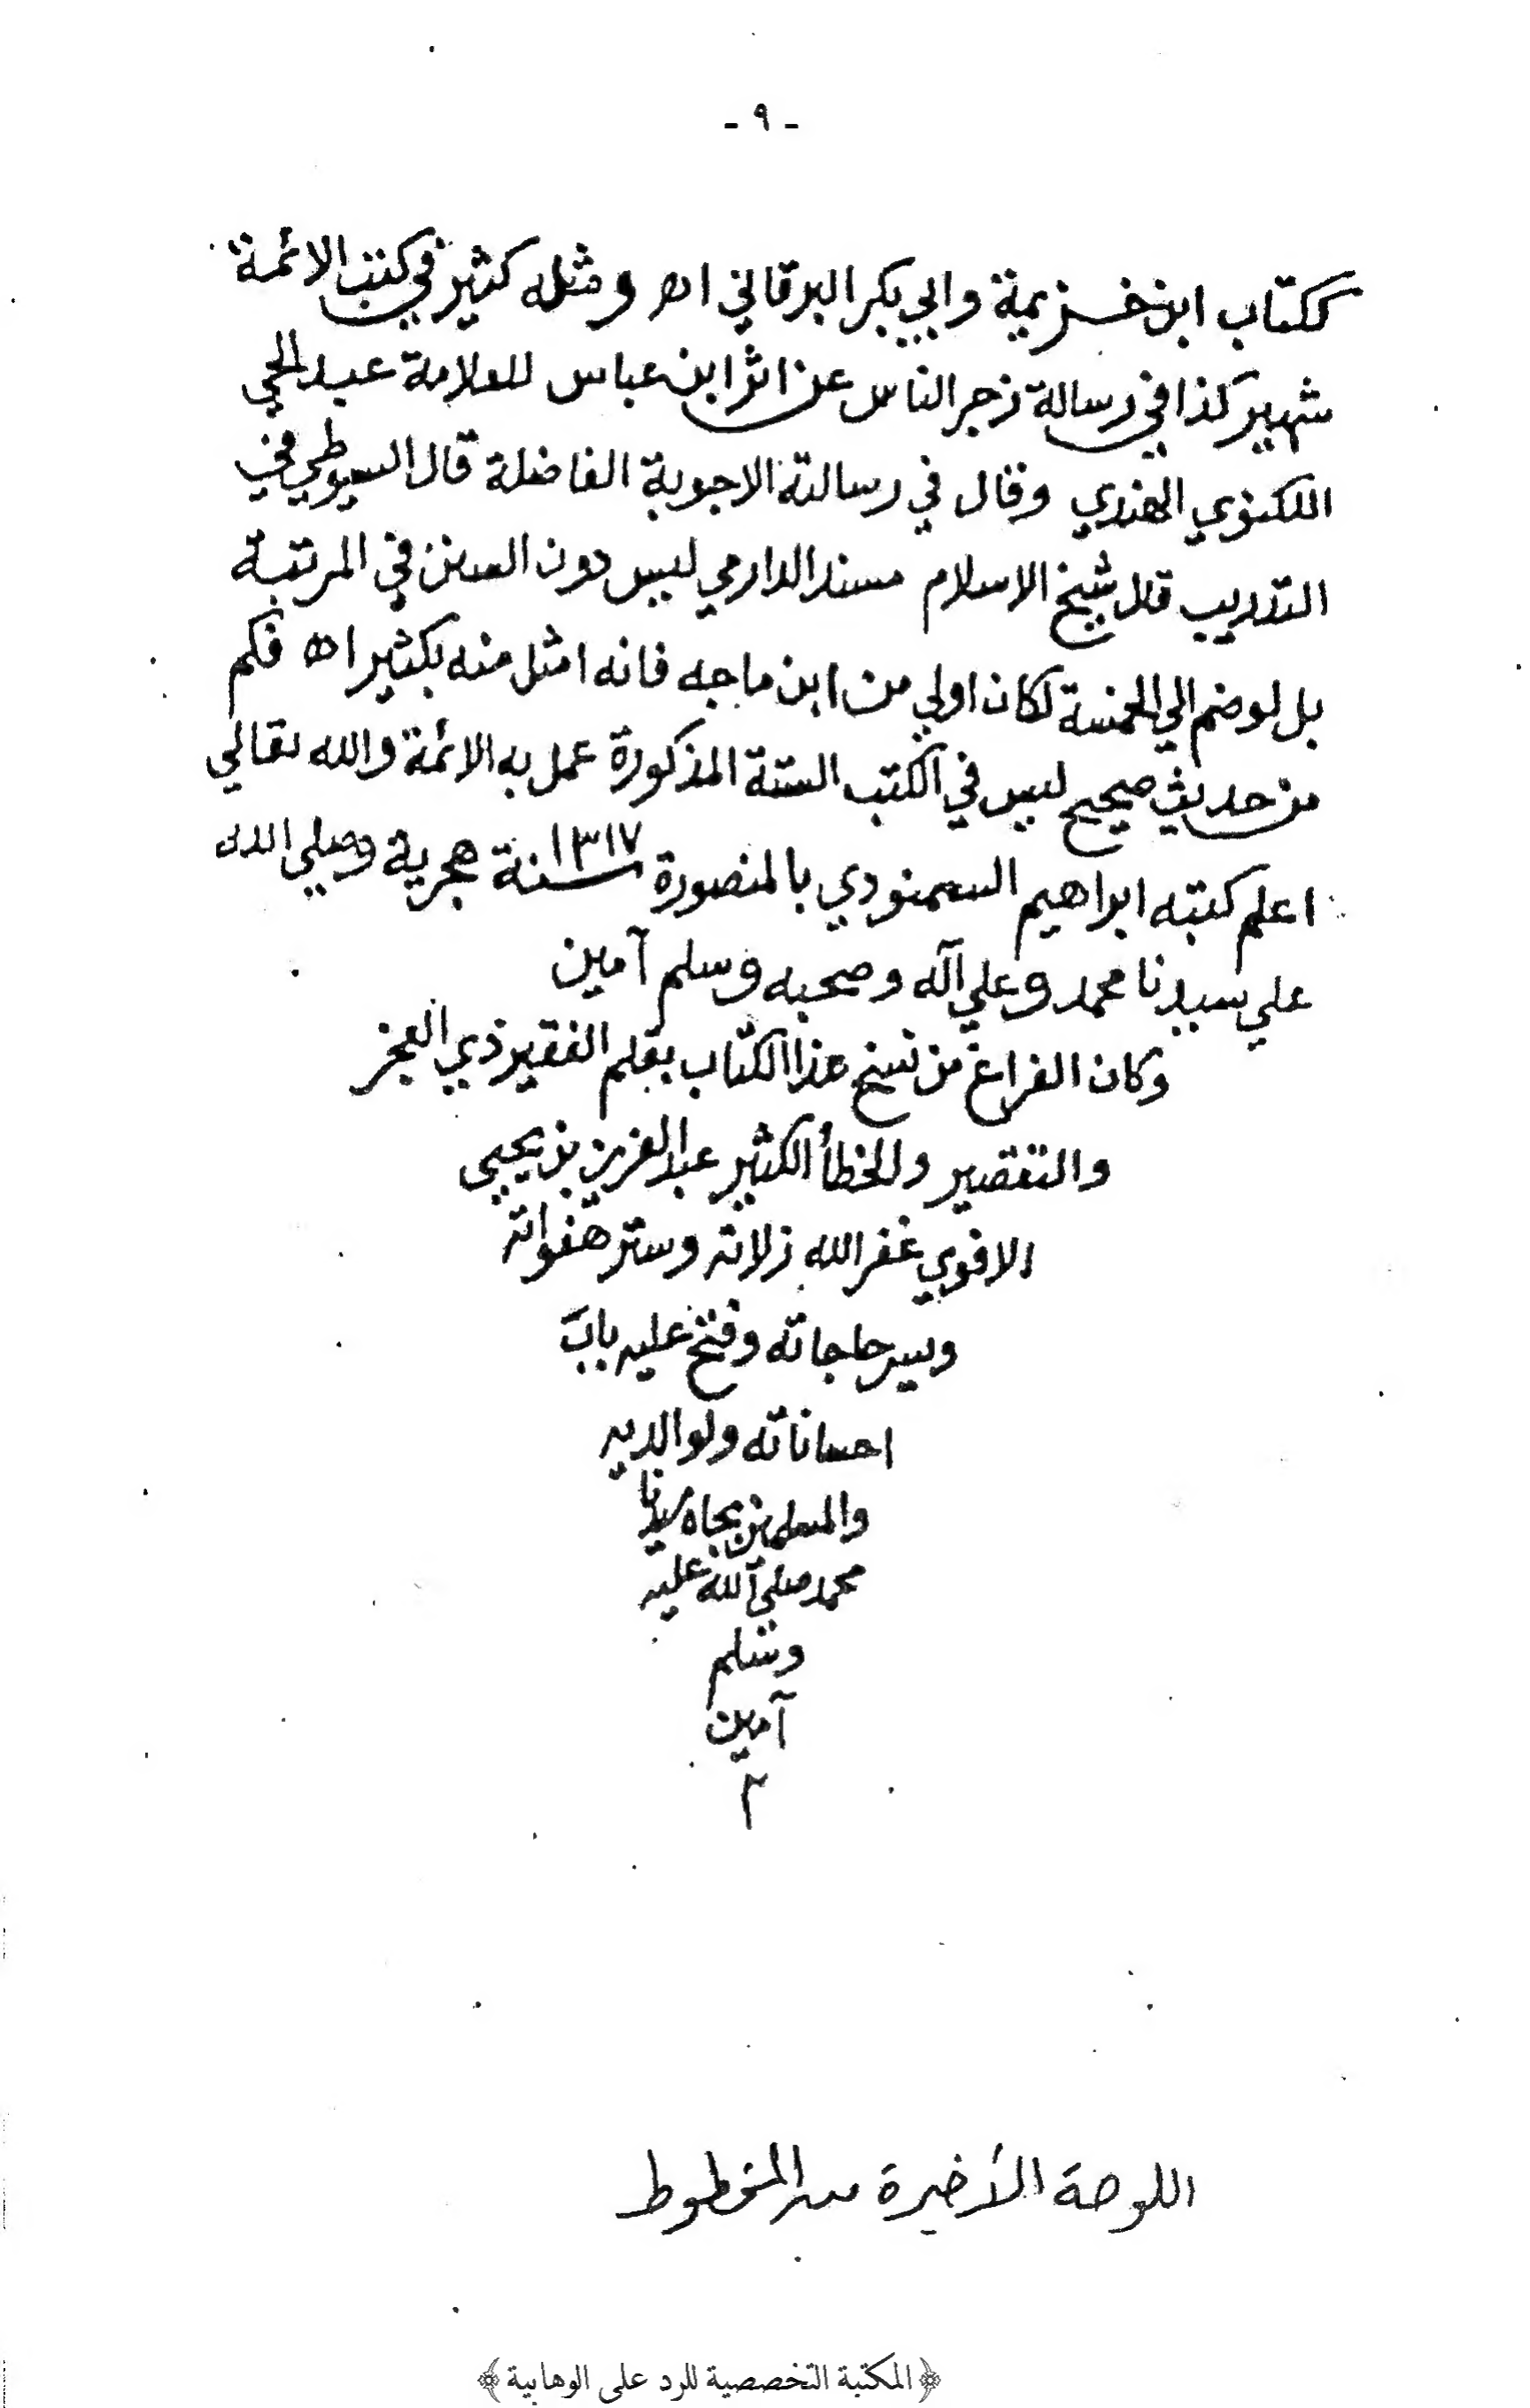 - ٩ -
ككتاب ابن خزيمة وابي بكر البرقاني اه ومثله كثير في كتب الائمة
شهير كذا في رسالة زجر الناس عن اثر ابن عباس للعلامة عبد الحي
اللكنوي الهندي وقال في رسالته الاجوبة الفاضلة قال السيوطي في
التدريب قال شيخ الاسلام مسند الدارمي ليس دون السنن في المرتبة
بل لو ضم الي الخمسة لكان اولي من ابن ماجه فانه امثل منه بكثير اه فكم
من حديث صحيح ليس في الكتب الستة المذكورة عمل به الائمة والله تعالي
اعلم كتبه ابراهيم السمنودي بالمنصورة ١٣١٧ سنة هجرية وصلي الله
علي سيدنا محمد وعلي آله وصحبه وسلم آمين
وكان الفراغ من نسخ هذا الكتاب بقلم الفقير ذي العجز
والتقصير والخطأ الكثير عبد العزيز بن يحيي
الافوي غفر الله زلاته وستر هفواته
ويسر حاجاته وفتح عليه باب
احساناته ولوالديه
والمسلمين بجاه سيدنا
محمد صلي الله عليه
وسلم
آمين
م
اللوحة الأخيرة من المخطوط
﴿المكتبة التخصصية للرد على الوهابية﴾